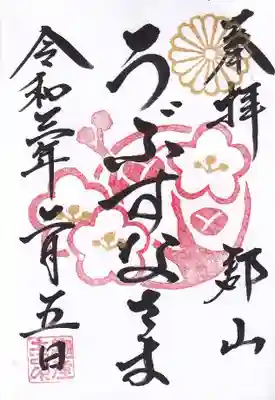 奉拝 郡山
うぶすなさま
令和 年 二月五日